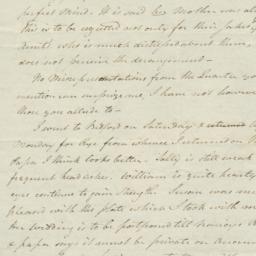 perfect mind. It is said & Mother was al
this is to be regretted not only for their sakes
Aunt who is much distressed about them,
does not become the derangement—
No misrepresentations from the Quarter yo
mention can surprize me, I have not however
those you allude to—
I went to Bedford on Saturday & returned
Monday for Rye from whence I returned on
Papa I think looks better. Sally is still weak
frequent headaches. William is quite hearty
eyes continue to gain strength. Susan was mu
pleased with the plate which I took with me
her wedding is to be postponed till
& papa says it must be private on Accoun